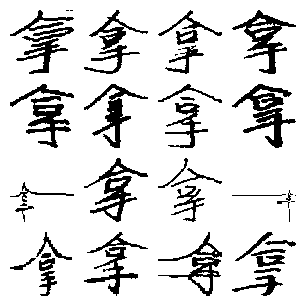 拿拿拿拿
拿拿拿拿
拿拿
拿拿拿拿